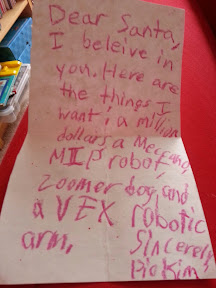 Dear Santa,
I beleive in
you. Here are
the things I
want: a million
dollars a Meccano,
MIP robot,
zoomer dog, and
a VEX robotic
arm.
Sincerely,
Bio Kim